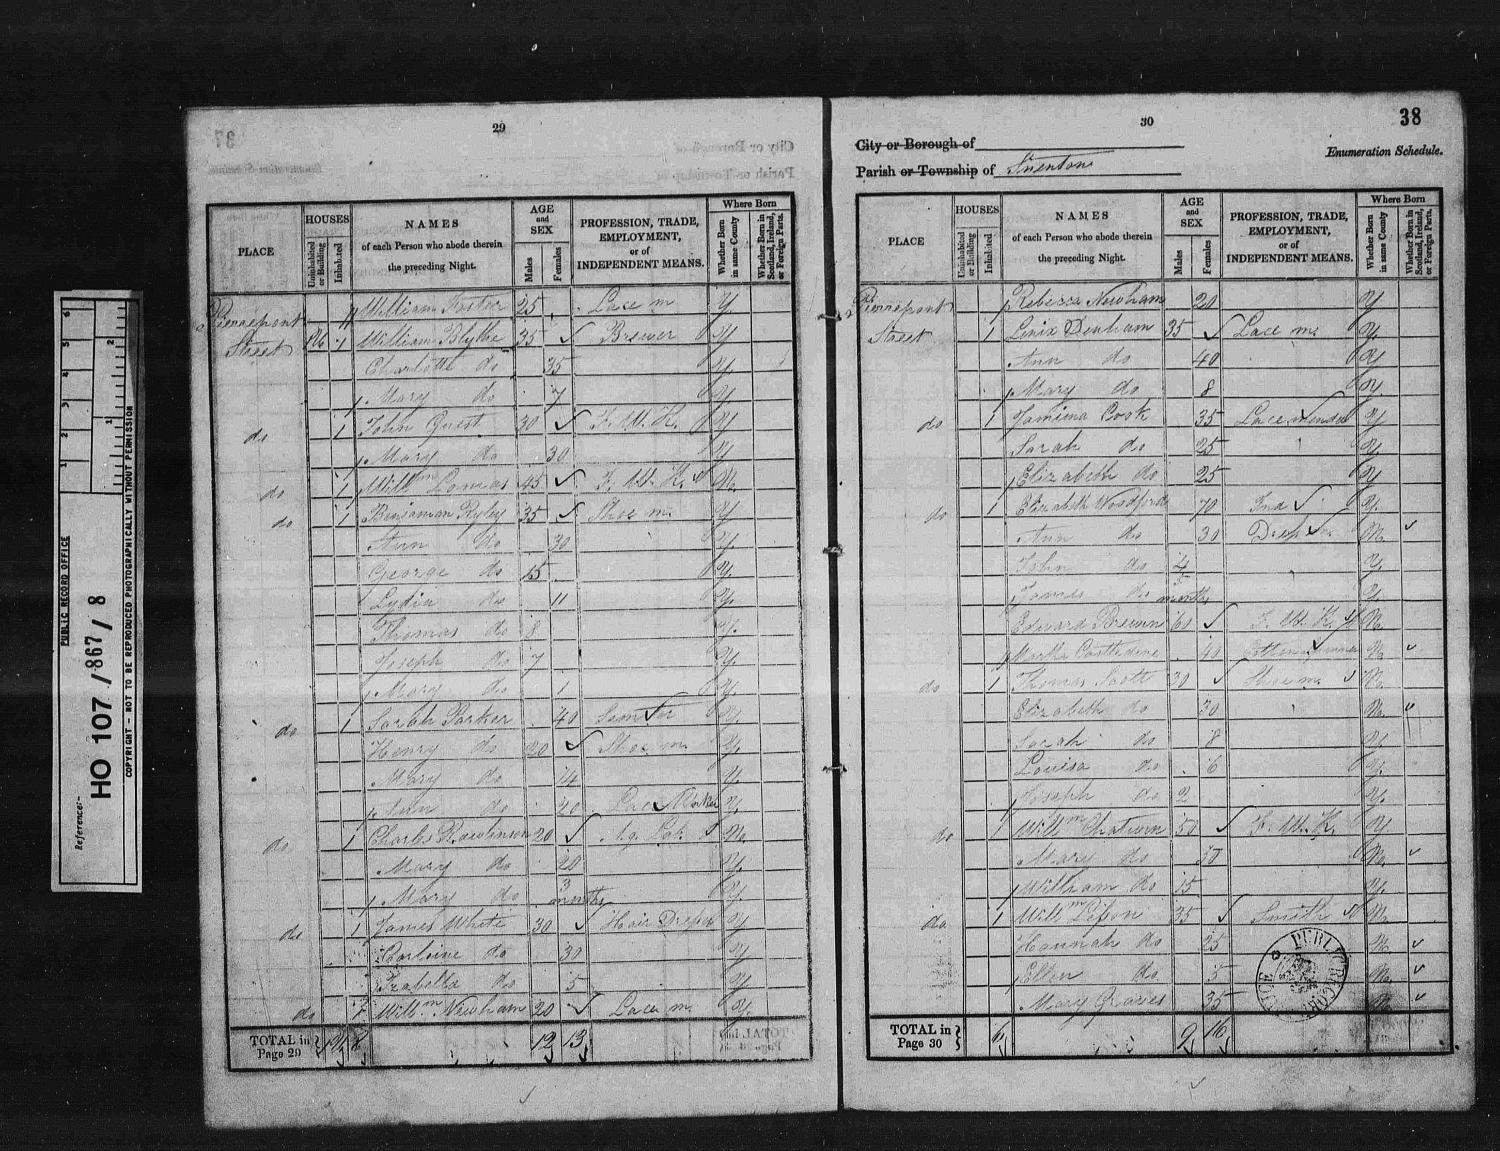 PUBLIC RECORD OFFICE
Reference:-
HO 107 / 867 / 8
COPYRIGHT - NOT TO BE REPRODUCED PHOTOGRAPHICALLY WITHOUT PERMISSION
29
PLACE
HOUSES
Uninhabited or Building
Inhabited
NAMES
of each Person who abode therein
the preceding Night.
AGE and SEX
Males
Females
PROFESSION, TRADE, EMPLOYMENT, or of INDEPENDENT MEANS.
Where Born
Whether Born in same County
Whether Born in Scotland, Ireland, or Foreign Parts.
Pierrepont William Foster 25 Lace m Y
Street 1 William Blythe 35 Brewer Y
Charlotte do 35 Y
Mary do 7 Y
do 1 John Guest 30 F. W. K. Y
Mary do 30 Y
do 1 Willm Lomas 45 F. W. K. N
do 1 Benjaman Ryley 35 Shoe m. Y
Ann do 30 Y
George do 15 Y
Lydia do 11 Y
Thomas do 8 Y
Joseph do 7 Y
Mary do 1 Y
do 1 Sarah Parker 40 Y
Henry do 20 Shoe m. Y
Mary do 14 Y
Ann do 20 Lace Worker Y
do 1 Charles Rawlinson 20 Ag. Lab. N
Mary do 20 Y
Mary do 3 months Y
do 1 James White 30 Hair Dresser Y
do 30 Y
Izabella do 5 Y
do Willm Newham 20 Lace m. Y
TOTAL in Page 29 12 13
30
38
City or Borough of
Enumeration Schedule.
Parish or Township of Sneinton
PLACE
HOUSES
Uninhabited or Building
Inhabited
NAMES
of each Person who abode therein
the preceding Night.
AGE and SEX
Males
Females
PROFESSION, TRADE, EMPLOYMENT, or of INDEPENDENT MEANS.
Where Born
Whether Born in same County
Whether Born in Scotland, Ireland, or Foreign Parts.
Pierrepont Rebecca Newham 20 Y
Street 1 Denham 35 Lace m. Y
Ann do 40 Y
Mary do 8 Y
do 1 Jamima Cook 35 Lace mender Y
Sarah do 25 Y
Elizabeth do 25 Y
do 1 Elizabeth Woodforde 70 Ind Y
Ann do 30 N
John do 4 Y
James do months Y
Edward Brewin 60 F. W. K. N
Martha 40 Cotton N
do 1 Thomas Scott 30 Shoe m. N
Elizabeth do 30 N
Sarah do 8 Y
Louisa do 6 Y
Joseph do 2 Y
do 1 Willm Chatwin 50 F. W. K. Y
Mary do 50 N
William do 15 Y
do 1 Willm 35 Smith N
Hannah do 25 N
Ellen do 5 N
Mary Graves 35 N
TOTAL in Page 30 6 9 16
PUBLIC RECORD OFFICE